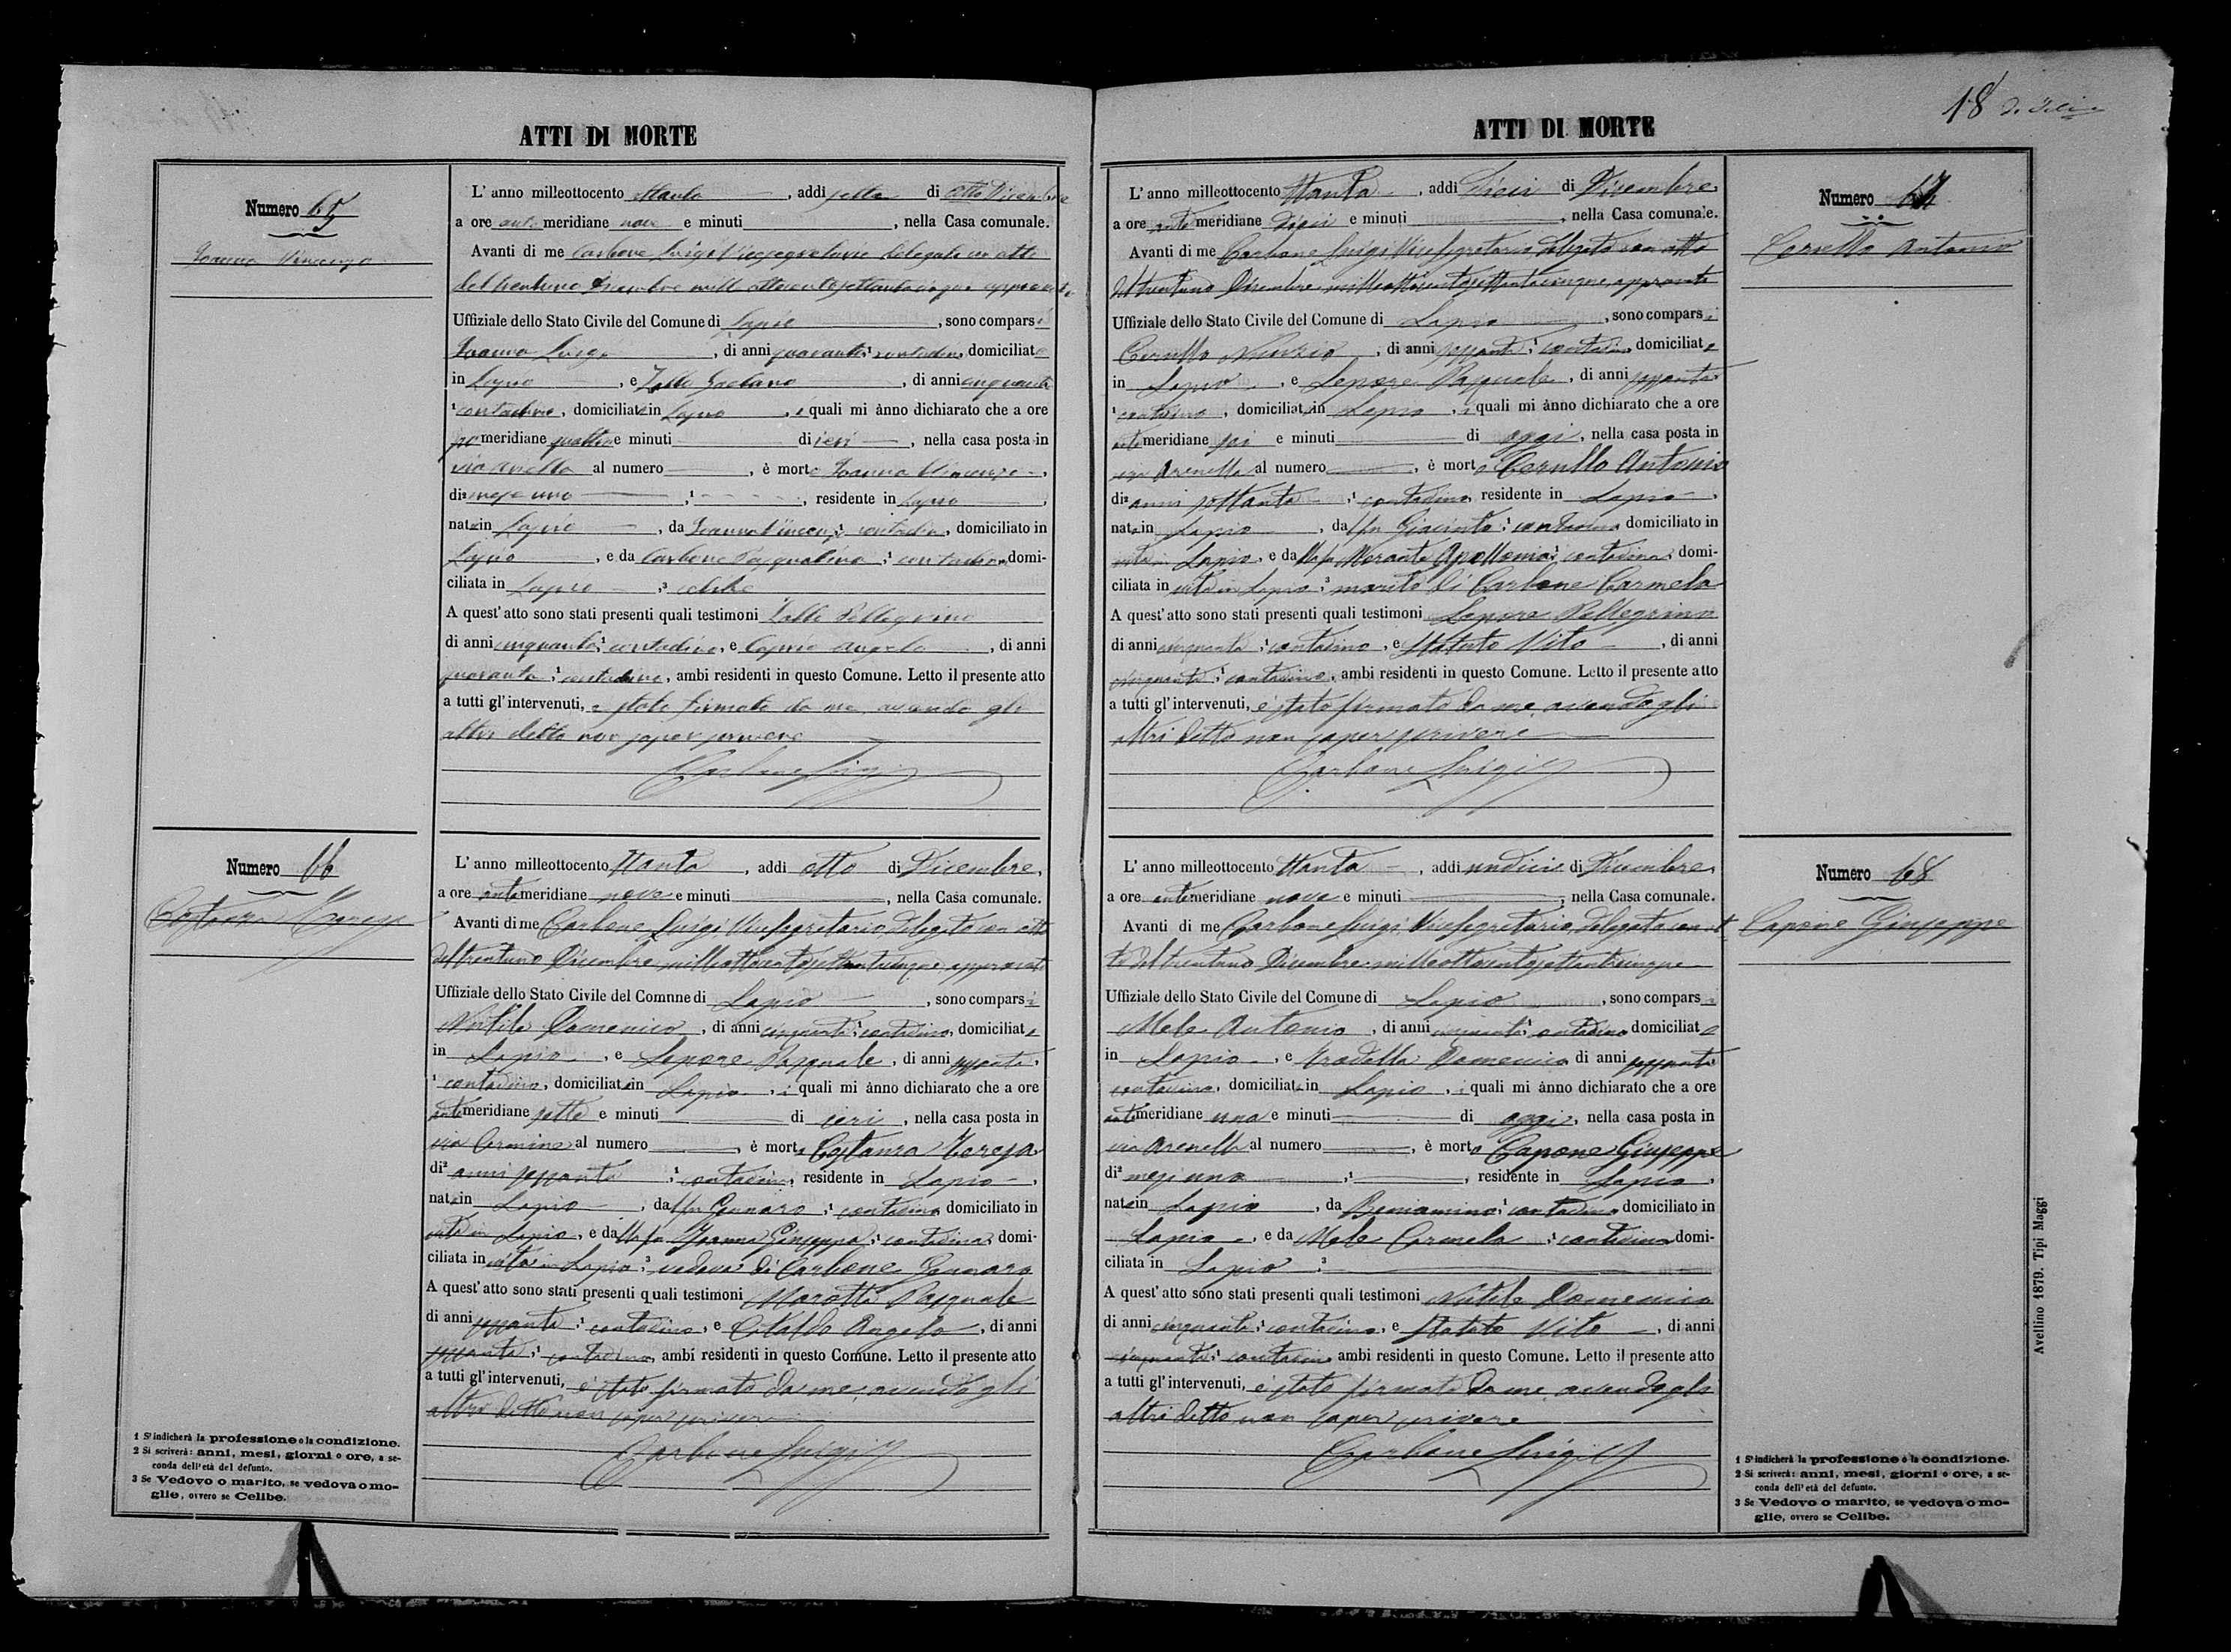 ATTI DI MORTE
Numero 65
Ioanna Vincenzo
L' anno milleottocento ottanta, addi sette di Dicembre
a ore ante meridiane nove e minuti, nella Casa comunale.
Avanti di me Carbone Luigi Vicesegretario delegato con atto
del trentuno Dicembre mille ottocentosettantacinque approvato
Uffiziale dello Stato Civile del Comune di Lapio, sono comparsi
Ioanna Luigi, di anni quaranta contadino domiciliato
in Lapio, e Zollo Gaetano, di anni cinquanta
contadino, domiciliato in Lapio, i quali mi ànno dichiarato che a ore
po meridiane quattro e minuti di ieri, nella casa posta in
via Arenella al numero, è morto Ioanna Vincenzo,
di mese uno, residente in Lapio,
nato in Lapio, da Ioanna contadino, domiciliato in
Lapio, e da Carbone Pasqualina contadina domi-
ciliata in Lapio celibe
A quest' atto sono stati presenti quali testimoni Zollo Pellegrino
di anni cinquanta contadino, e Angelo, di anni
quaranta contadino, ambi residenti in questo Comune. Letto il presente atto
a tutti gl' intervenuti, è stato firmato da me avendo gli
altri detto non saper scrivere
Carbone Luigi
Numero 66
Costanza Teresa
L' anno milleottocento ottanta, addi otto di Dicembre,
a ore antemeridiane nove e minuti, nella Casa comunale.
Avanti di me Carbone Luigi Vicesegretario delegato con atto
del trentuno Dicembre milleottocentosettantacinque approvato
Uffiziale dello Stato Civile del Comnne di Lapio, sono comparsi
Domenico, di anni cinquanta contadino, domiciliato
in Lapio, e Lepore Pasquale, di anni sessanta,
1 contadino, domiciliato in Lapio, i quali mi ànno dichiarato che a ore
antemeridiane sette e minuti di ieri, nella casa posta in
via Carmine al numero, è morta Costanza Teresa
di2 anni sessanta contadina, residente in Lapio,
nata in Lapio, da fu Gennaro contadino domiciliato in
vita in Lapio, e da fu Ioanna Giuseppa contadina domi-
ciliata in vita in Lapio vedova di Carbone Gennaro
A quest' atto sono stati presenti quali testimoni Marotta Pasquale
di anni sessanta contadino, e Cataldo Angelo, di anni
sessanta contadino, ambi residenti in questo Comune. Letto il presente atto
a tutti gl' intervenuti, è stato firmato da me avendo gli
altri detto non saper scrivere
Carbone Luigi
1 S' indicherà la professione o la condizione.
2 Si scriverà: anni, mesi, giorni o ore, a se-
conda dell'età del defunto.
3 Se Vedovo o marito, se vedova o mo-
glie, ovvero se Celibe.
18
ATTI DI MORTE
Numero 67
Cerullo Antonio
L' anno milleottocento ottanta, addi dieci di Dicembre
a ore antemeridiane dieci e minuti, nella Casa comunale.
Avanti di me Carbone Luigi Vicesegretario delegato con atto
del trentuno Dicembre milleottocentosettantacinque, approvato
Uffiziale dello Stato Civile del Comune di Lapio, sono comparsi
Cerullo Nunzio, di anni sessanta contadino domiciliato
in Lapio, e Lepore Pasquale, di anni sessanta
1 contadino, domiciliato in Lapio, i quali mi ànno dichiarato che a ore
antemeridiane sei e minuti di oggi, nella casa posta in
via Arenella al numero, è morto Cerullo Antonio
di2 anni settanta contadino residente in Lapio,
nato in Lapio, da fu Giacinto contadino domiciliato in
vita in Lapio, e da fu Morante Apollonia contadina domi-
ciliata in vita in Lapio marito di Carbone Carmela
A quest' atto sono stati presenti quali testimoni Lepore Pellegrino
di anni cinquanta contadino, e Statuto Vito, di anni
cinquanta contadino, ambi residenti in questo Comune. Letto il presente atto
a tutti gl' intervenuti, è stato firmato da me avendo gli
altri detto non saper scrivere
Carbone Luigi
Numero 68
Capone Giuseppe
L' anno milleottocento ottanta, addi undici di Dicembre,
a ore antemeridiane nove e minuti, nella Casa comunale.
Avanti di me Carbone Luigi Vicesegretario delegato con at
to del trentuno Dicembre milleottocentosettantacinque
Uffiziale dello Stato Civile del Comune di Lapio, sono comparsi
Mele Antonio, di anni cinquanta contadino domiciliato
in Lapio, e Domenico di anni sessanta
contadino, domiciliato in Lapio, i quali mi ànno dichiarato che a ore
antimeridiane una e minuti di oggi, nella casa posta in
via Arenella al numero, è morto Capone Giuseppe
di2 mesi uno, residente in Lapio,
nato in Lapio, da Beniamino contadino domiciliato in
Lapio, e da Mele Carmela contadina domi-
ciliata in Lapio 3
A quest' atto sóno stati presenti quali testimoni Domenico
di anni cinquanta contadino, e Statuto Vito, di anni
cinquanta contadino ambi residenti in questo Comune. Letto il presente atto
a tutti gl' intervenuti, è stato firmato da me avendo gli
altri detto non saper scrivere
Carbone Luigi
1 S' indicherà la professione o la condizione.
2 Si scriverà: anni, mesi, giorni o ore, a se-
conda dell'età del defunto.
3 Se Vedovo o marito, se vedova o mo-
glie, ovvero se Celibe.
Avellino 1879. Tipi Maggi